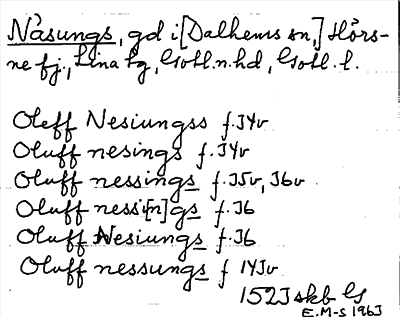 Nåsungs, gd i [Dalhems sn,] Hörs-
ne fj., Lina tg, Gotl. n. hd, Gotl. l.
Oleff Nesiungss f. 34v
Oluff nesings f. 34v
Oluff nessings f. 35v, 36v
Oluff nessi[n]gs f. 36
Oluff Nesiungs f. 36
Oluff nessungs f 143v
1523 skb G
E. M-s 1963